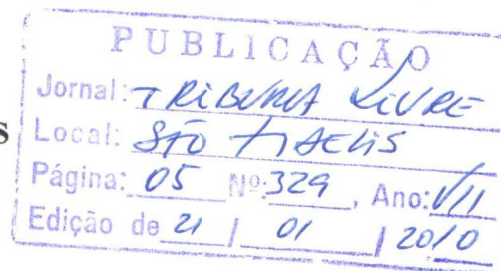 PUBLICAÇÃO
Jornal: TRIBUNA LIVRE
s Local: SÃO FIDELIS
Página: 05 Nº: 329, Ano: VII
Edição de 21 / 01 / 2010